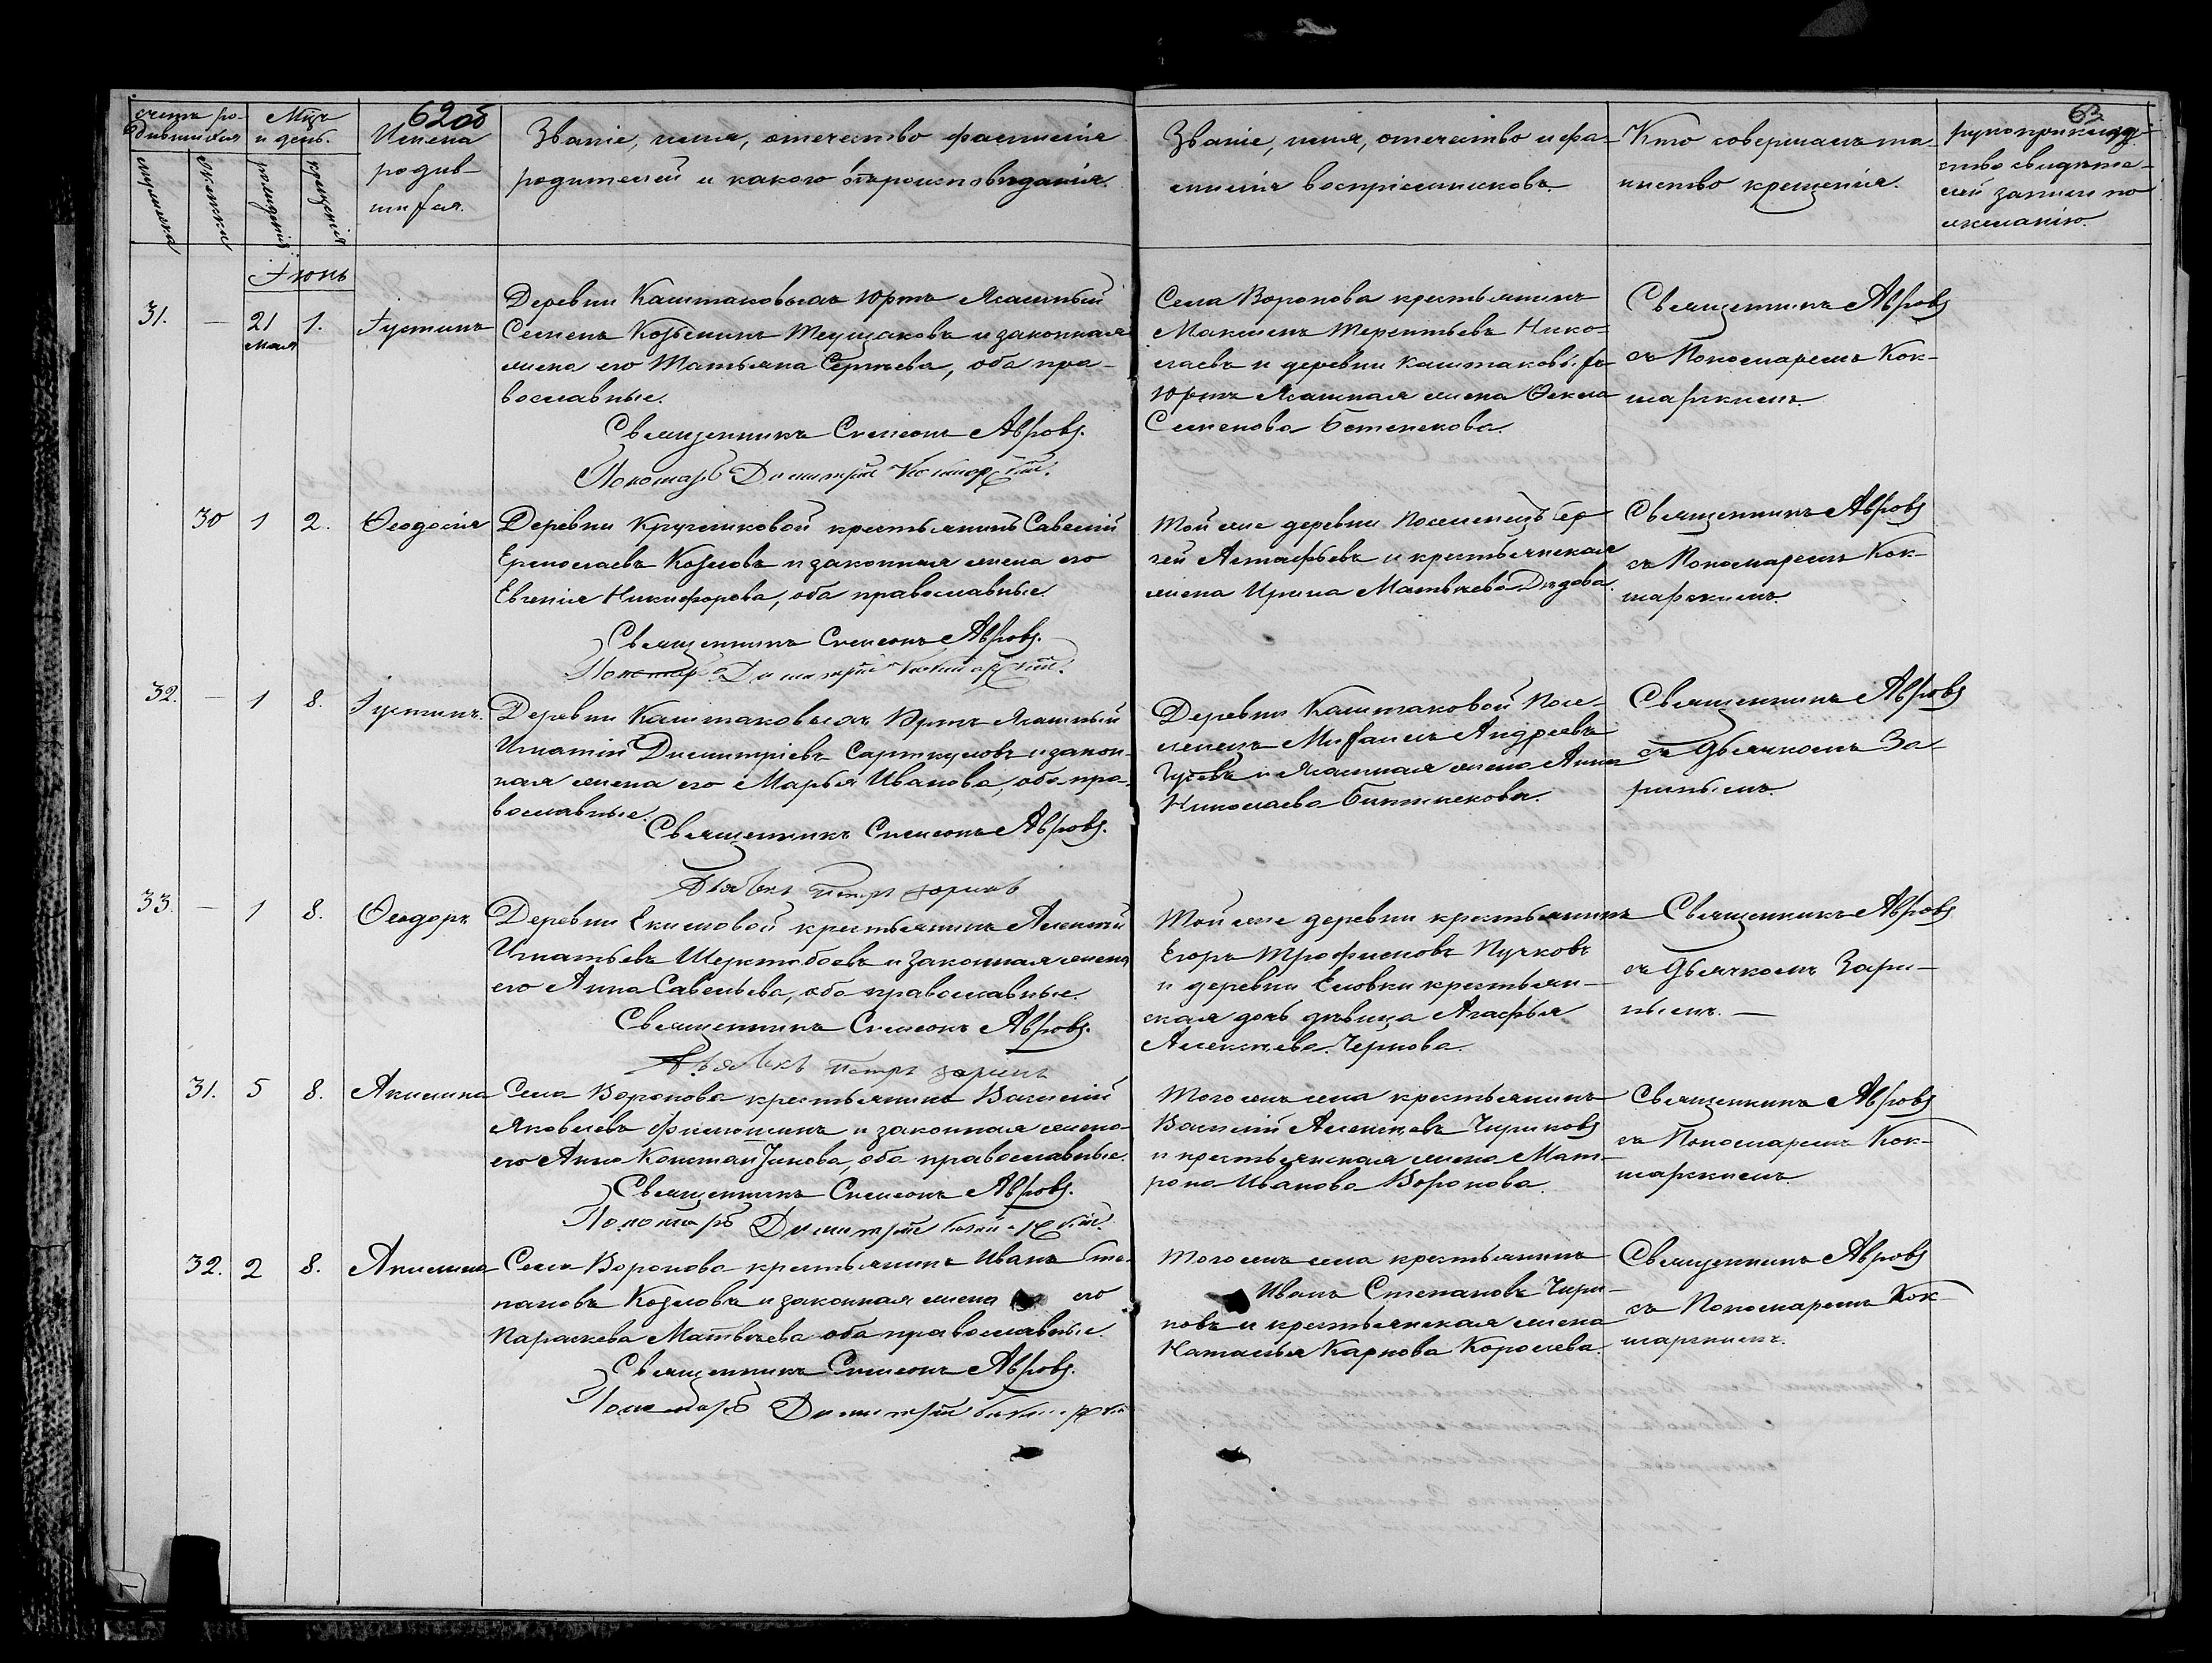 62 об
63
счетъ ро-
дившихся
Мцъ
и день.
мужеска
женска
рожденія
крещенія
Имена
родив-
шихся.
Званіе, имя, отечество фамилія
родителей и какого вѣроисповѣданія.
Званіе, имя, отечество и фа-
милія воспріемниковъ
Кто совершалъ та-
инство крещенія.
рукоприклад-
ство свидѣте-
лей записи по
желанію.
Іюнь
31. — 21 мая 1. Іустинъ
Деревни Каштаковыхъ Юртъ Ясашный
Семенъ Козьминъ Теущаковъ и законная
жена его Татьяна Сергѣева, оба пра-
вославные.
Священникъ Симеонъ Авровъ.
Пономарь Димитрій Кокшарскій.
Села Воронова крестьянинъ
Максимъ Терентьевъ Нико-
лаевъ и деревни Каштаковыхъ
Юртъ Ясашная жена Ѳекла
Семенова Бетенекова.
Священникъ Авровъ
съ Пономаремъ Кок-
шарскимъ.
30 1 2. Ѳеодосія
Деревни Кругликовой крестьянинъ Савелій
Ермолаевъ Козловъ и законная жена его
Евгенія Никифорова, оба православные.
Священникъ Симеонъ Авровъ.
Пономарь Димитрій Кокшарскій.
Той же деревни Поселенецъ Сер-
гей Астафьевъ и крестьянская
жена Ирина Матвѣева Дѣдова.
Священникъ Авровъ
съ Пономаремъ Кок-
шарскимъ.
32. — 1 8. Іустинъ.
Деревни Каштаковыхъ Юртъ Ясашный
Игнатій Димитріевъ Сарткуловъ и закон-
ная жена его Марья Иванова, оба пра-
вославные.
Священникъ Симеонъ Авровъ.
Дьячекъ Петръ Заринъ
Деревни Каштаковой Посе-
ленецъ Михаилъ Андреевъ
Гусевъ и Ясашная жена Анна
Николаева Битенекова.
Священникъ Авровъ
съ Дьячкомъ За-
ринымъ.
33. — 1 8. Ѳеодоръ
Деревни Екимовой крестьянинъ Алексѣй
Игнатьевъ Шерстобоевъ и законная жена
его Анна Савельева, оба православные.
Священникъ Симеонъ Авровъ.
Дьячекъ Петръ Заринъ
Той же деревни крестьянинъ
Егоръ Трофимовъ Пучковъ
и деревни Еловки крестьян-
ская дочь дѣвица Агафья
Алексѣева Чернова.
Священникъ Авровъ
съ Дьячкомъ Зари-
нымъ. —
31. 5 8. Акилина
Села Воронова крестьянинъ Василій
Яковлевъ Филюшинъ и законная жена
его Анна Константинова, оба православные.
Священникъ Симеонъ Авровъ.
Пономарь Димитрій Кокшарскій.
Того жъ села крестьянинъ
Василій Алексѣевъ Чириковъ
и крестьянская жена Мат-
рона Иванова Воронова.
Священникъ Авровъ
съ Пономаремъ Кок-
шарскимъ.
32. 2 8. Акилина
Села Воронова крестьянинъ Иванъ Сте-
пановъ Козловъ и законная жена его
Параскева Матвѣева оба православные.
Священникъ Симеонъ Авровъ.
Пономарь Димитрій Кокшарскій
Того жъ села крестьянинъ
Иванъ Степановъ Чири-
ковъ и крестьянская жена
Наталья Карпова Королева.
Священникъ Авровъ
съ Пономаремъ Кок-
шарскимъ.